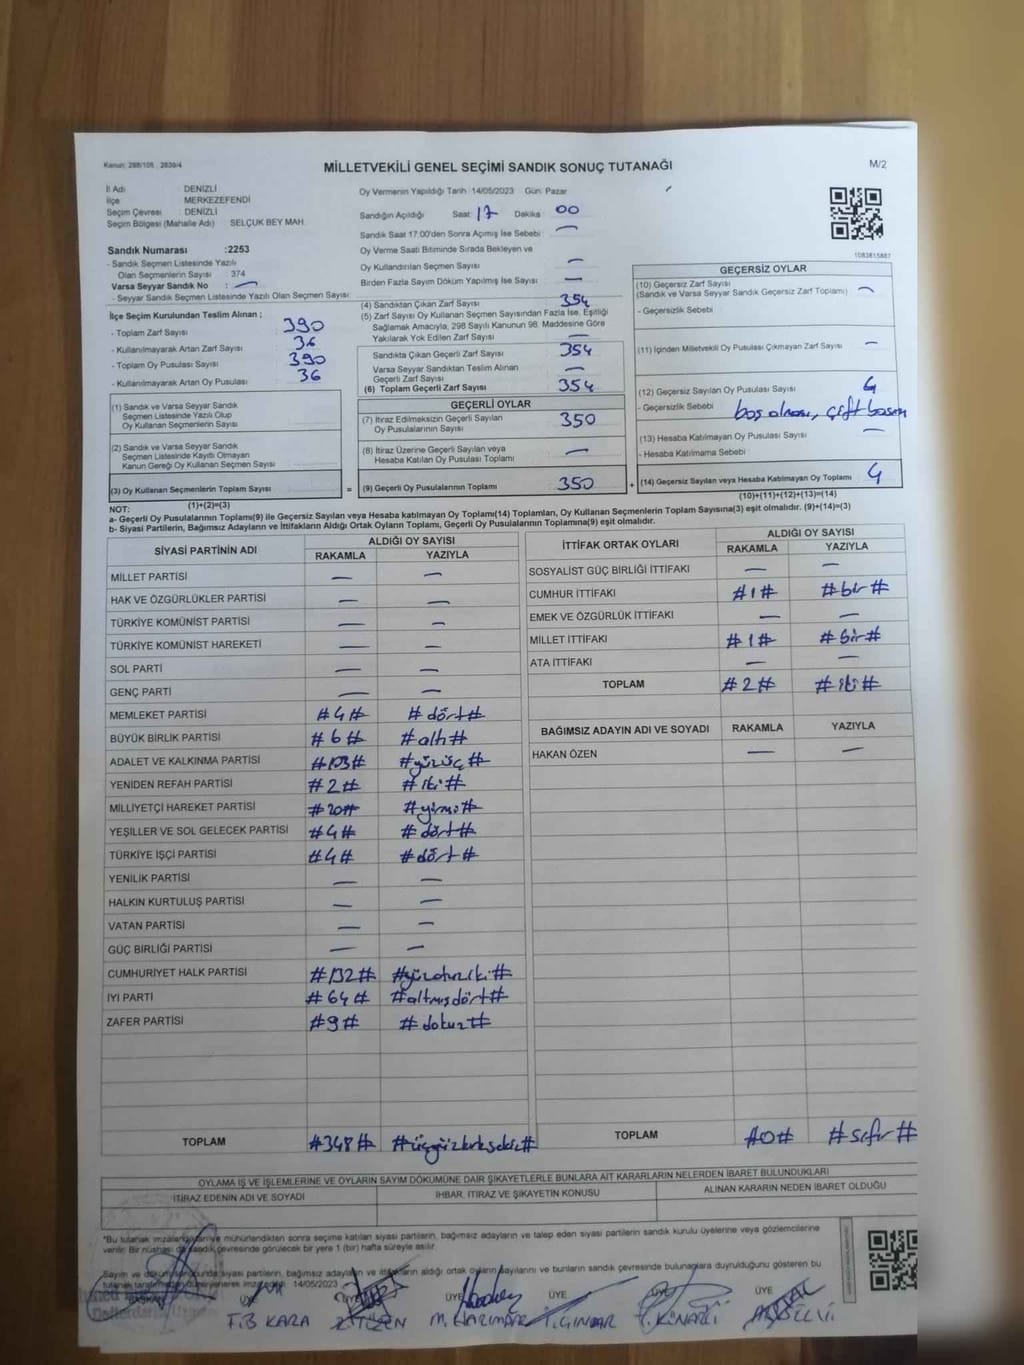 Kanun: 298/105 , 2839/4
MİLLETVEKİLİ GENEL SEÇİMİ SANDIK SONUÇ TUTANAĞI
M/2
İl Adı DENİZLİ
İlçe MERKEZEFENDİ
Seçim Çevresi DENİZLİ
Seçim Bölgesi (Mahalle Adı) SELÇUK BEY MAH.
Sandık Numarası :2253
- Sandık Seçmen Listesinde Yazılı
Olan Seçmenlerin Sayısı : 374
Varsa Seyyar Sandık No : —
- Seyyar Sandık Seçmen Listesinde Yazılı Olan Seçmen Sayısı:
İlçe Seçim Kurulundan Teslim Alınan ;
- Toplam Zarf Sayısı 390
- Kullanılmayarak Artan Zarf Sayısı 36
- Toplam Oy Pusulası Sayısı 390
- Kullanılmayarak Artan Oy Pusulası 36
(1) Sandık ve Varsa Seyyar Sandık
Seçmen Listesinde Yazılı Olup
Oy Kullanan Seçmenlerin Sayısı
(2) Sandık ve Varsa Seyyar Sandık
Seçmen Listesinde Kayıtlı Olmayan
Kanun Gereği Oy Kullanan Seçmen Sayısı
(3) Oy Kullanan Seçmenlerin Toplam Sayısı
(1)+(2)=(3)
Oy Vermenin Yapıldığı Tarih :14/05/2023 Gün: Pazar
Sandığın Açıldığı Saat: 17 Dakika 00
Sandık Saat 17:00'den Sonra Açılmış İse Sebebi : —
Oy Verme Saati Bitiminde Sırada Bekleyen ve
Oy Kullandırılan Seçmen Sayısı —
Birden Fazla Sayım Döküm Yapılmış İse Sayısı —
(4) Sandıktan Çıkan Zarf Sayısı 354
(5) Zarf Sayısı Oy Kullanan Seçmen Sayısından Fazla İse, Eşitliği
Sağlamak Amacıyla, 298 Sayılı Kanunun 98. Maddesine Göre
Yakılarak Yok Edilen Zarf Sayısı —
Sandıkta Çıkan Geçerli Zarf Sayısı 354
Varsa Seyyar Sandıktan Teslim Alınan
Geçerli Zarf Sayısı —
(6) Toplam Geçerli Zarf Sayısı 354
GEÇERLİ OYLAR
(7) İtiraz Edilmeksizin Geçerli Sayılan
Oy Pusulalarının Sayısı 350
(8) İtiraz Üzerine Geçerli Sayılan veya
Hesaba Katılan Oy Pusulası Toplamı —
= (9) Geçerli Oy Pusulalarının Toplamı 350 +
1083815887
GEÇERSİZ OYLAR
(10) Geçersiz Zarf Sayısı
(Sandık ve Varsa Seyyar Sandık Geçersiz Zarf Toplamı) —
- Geçersizlik Sebebi
(11) İçinden Milletvekili Oy Pusulası Çıkmayan Zarf Sayısı —
(12) Geçersiz Sayılan Oy Pusulası Sayısı 4
- Geçersizlik Sebebi boş olması, çift basım
(13) Hesaba Katılmayan Oy Pusulası Sayısı —
- Hesaba Katılmama Sebebi
(14) Geçersiz Sayılan veya Hesaba Katılmayan Oy Toplamı 4
(10)+(11)+(12)+(13)=(14)
NOT:
a- Geçerli Oy Pusulalarının Toplamı(9) ile Geçersiz Sayılan veya Hesaba katılmayan Oy Toplamı(14) Toplamları, Oy Kullanan Seçmenlerin Toplam Sayısına(3) eşit olmalıdır. (9)+(14)=(3)
b- Siyasi Partilerin, Bağımsız Adayların ve İttifakların Aldığı Ortak Oyların Toplamı, Geçerli Oy Pusulalarının Toplamına(9) eşit olmalıdır.
SİYASİ PARTİNİN ADI ALDIĞI OY SAYISI
RAKAMLA YAZIYLA
MİLLET PARTİSİ — —
HAK VE ÖZGÜRLÜKLER PARTİSİ — —
TÜRKİYE KOMÜNİST PARTİSİ — —
TÜRKİYE KOMÜNİST HAREKETİ — —
SOL PARTİ — —
GENÇ PARTİ — —
MEMLEKET PARTİSİ #4# #dört#
BÜYÜK BİRLİK PARTİSİ #6# #altı#
ADALET VE KALKINMA PARTİSİ #103# #yüzüç#
YENİDEN REFAH PARTİSİ #2# #iki#
MİLLİYETÇİ HAREKET PARTİSİ #20# #yirmi#
YEŞİLLER VE SOL GELECEK PARTİSİ #4# #dört#
TÜRKİYE İŞÇİ PARTİSİ #4# #dört#
YENİLİK PARTİSİ — —
HALKIN KURTULUŞ PARTİSİ — —
VATAN PARTİSİ — —
GÜÇ BİRLİĞİ PARTİSİ — —
CUMHURİYET HALK PARTİSİ #132# #yüzotuziki#
İYİ PARTİ #64# #altmışdört#
ZAFER PARTİSİ #9# #dokuz#
TOPLAM #348# #üçyüzkırksekiz#
İTTİFAK ORTAK OYLARI ALDIĞI OY SAYISI
RAKAMLA YAZIYLA
SOSYALİST GÜÇ BİRLİĞİ İTTİFAKI — —
CUMHUR İTTİFAKI #1# #bir#
EMEK VE ÖZGÜRLÜK İTTİFAKI — —
MİLLET İTTİFAKI #1# #bir#
ATA İTTİFAKI — —
TOPLAM #2# #iki#
BAĞIMSIZ ADAYIN ADI VE SOYADI RAKAMLA YAZIYLA
HAKAN ÖZEN — —
TOPLAM #0# #sıfır#
OYLAMA İŞ VE İŞLEMLERİNE VE OYLARIN SAYIM DÖKÜMÜNE DAİR ŞİKAYETLERLE BUNLARA AİT KARARLARIN NELERDEN İBARET BULUNDUKLARI
İTİRAZ EDENİN ADI VE SOYADI İHBAR, İTİRAZ VE ŞİKAYETİN KONUSU ALINAN KARARIN NEDEN İBARET OLDUĞU
*Bu tutanak imzalandıktan ve mühürlendikten sonra seçime katılan siyasi partilerin, bağımsız adayların ve talep eden siyasi partilerin sandık kurulu üyelerine veya gözlemcilerine
verilir. Bir nüshası da sandık çevresinde görülecek bir yere 1 (bir) hafta süreyle asılır.
Sayım ve döküm sonucunda siyasi partilerin, bağımsız adayların ve ittifakların aldığı ortak oyların sayılarını ve bunların sandık çevresinde bulunanlara duyrulduğunu gösteren bu
tutanak tarafımızdan düzenlenerek imza edildi. 14/05/2023
BAŞKAN ÜYE ÜYE ÜYE ÜYE ÜYE
F.B KARA